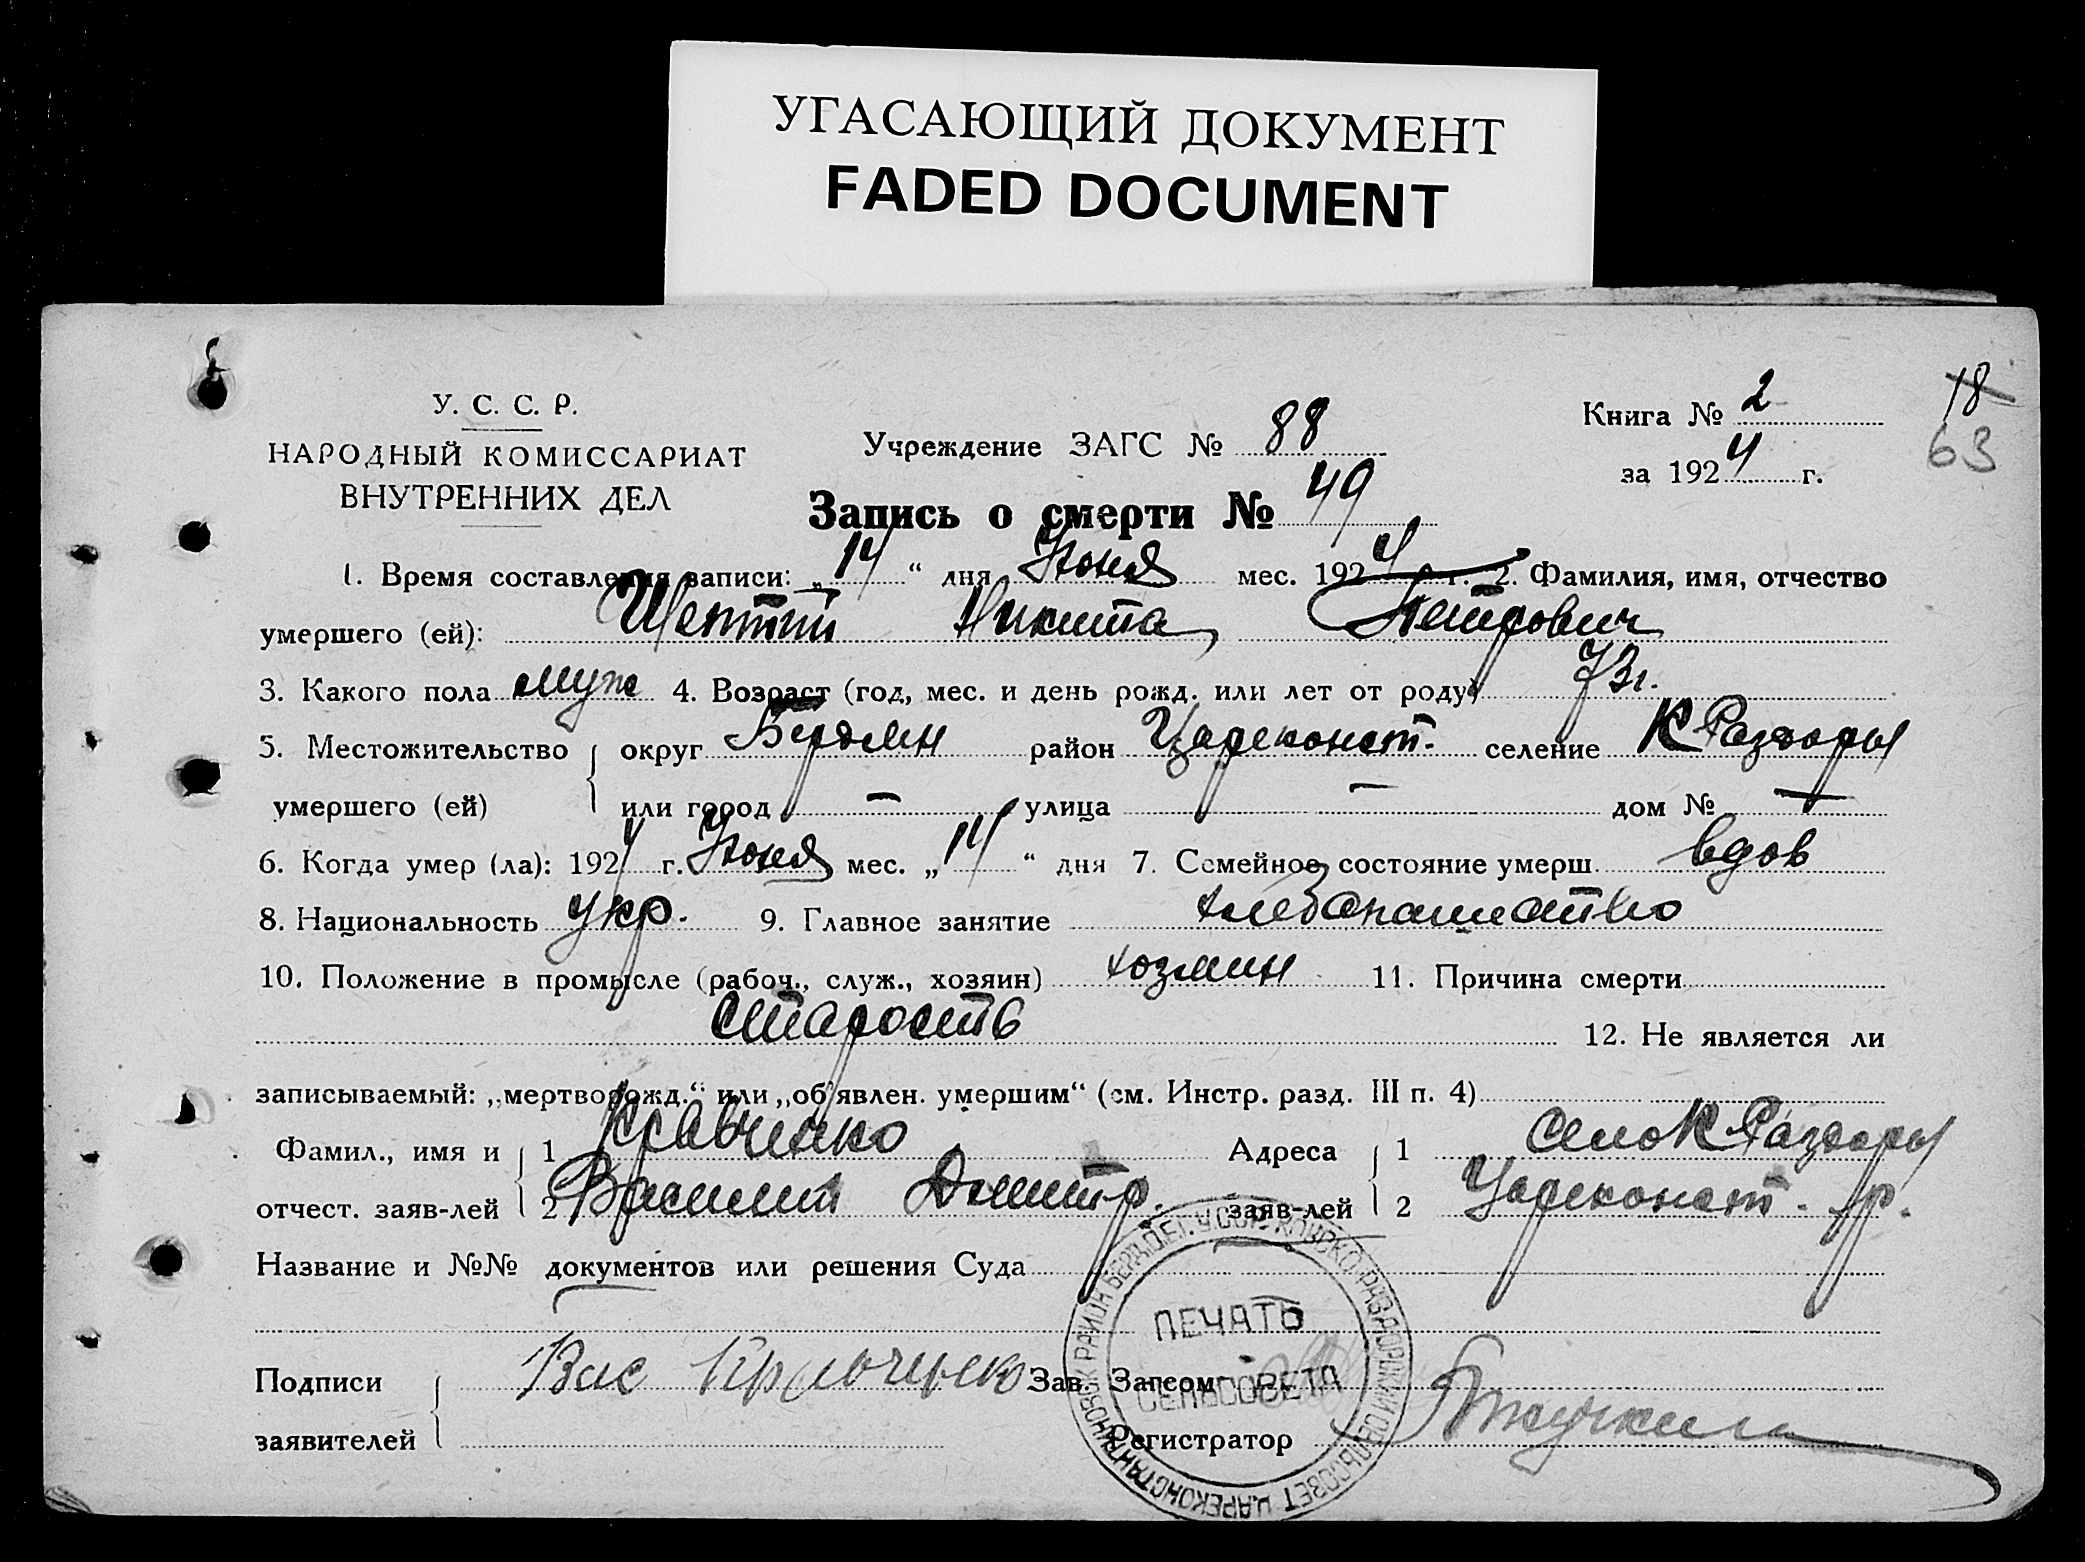 УГАСАЮЩИЙ ДОКУМЕНТ
FADED DOCUMENT
У. С. С. Р.
НАРОДНЫЙ КОМИССАРИАТ
ВНУТРЕННИХ ДЕЛ
Учреждение ЗАГС № 88
Книга № 2
за 1924 г.
18
63
Запись о смерти № 49
1. Время составления записи: „14“ дня Июня мес. 1924 г. 2. Фамилия, имя, отчество
умершего (ей): Никита Петрович
3. Какого пола муж 4. Возраст (год, мес. и день рожд. или лет от роду) 73 г.
5. Местожительство округ Бердян район Цареконст. селение К Раздоры
умершего (ей) или город — улица — дом № —
6. Когда умер (ла): 1924 г. Июня мес. „14“ дня 7. Семейное состояние умерш. вдов
8. Национальность укр. 9. Главное занятие хлебопашество
10. Положение в промысле (рабоч., служ., хозяин) хозяин 11. Причина смерти
старость 12. Не является ли
записываемый: „мертворожд.“ или „об'явлен. умершим“ (см. Инстр. разд. III п. 4)
Фамил., имя и 1 Кравченко Адреса 1 село К Раздоры
отчест. заяв-лей 2 Василий Дмитр. заяв-лей 2 Цареконст. р.
Название и №№ документов или решения Суда
ПЕЧАТЬ
СЕЛЬСОВЕТА
Подписи Вас Кравченко Зав. Загсом
заявителей Регистратор